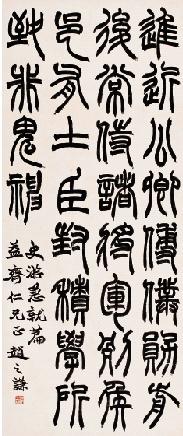 進近公卿傅僕勛前
後常侍諸將軍列侯
邑有土臣封積學所
致非鬼神
史游急就篇
益齊仁兄正 趙之謙